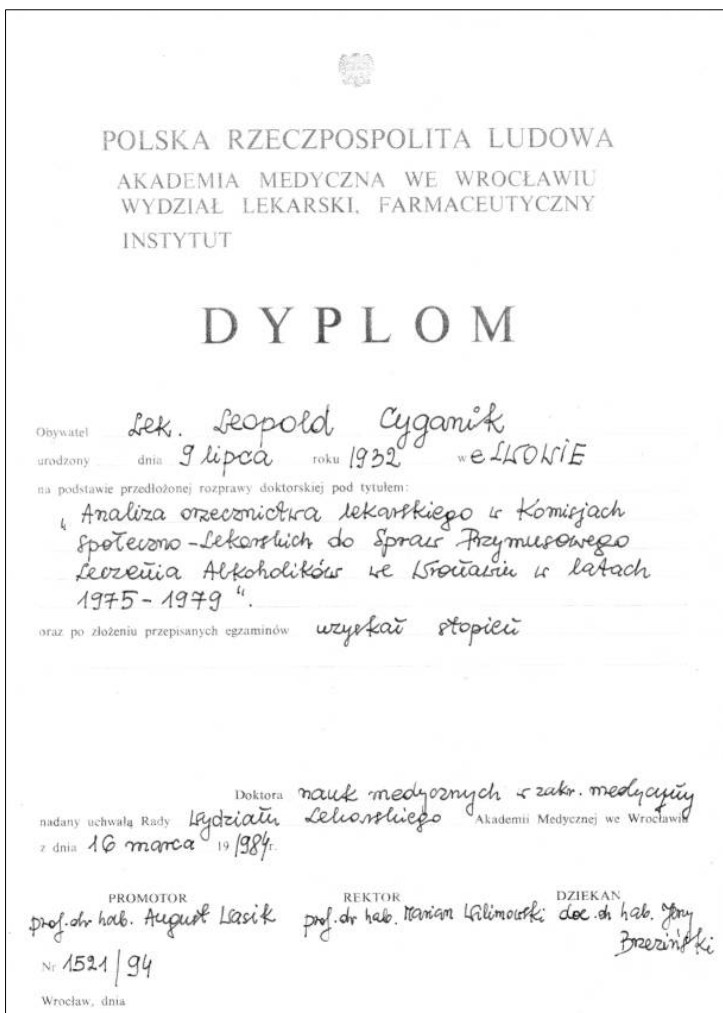 POLSKA RZECZPOSPOLITA LUDOWA
AKADEMIA MEDYCZNA WE WROCŁAWIU
WYDZIAŁ LEKARSKI, FARMACEUTYCZNY
INSTYTUT
DYPLOM
Obywatel Lek. Leopold Cyganik
urodzony dnia 9 lipca roku 1932 w e LWOWIE
na podstawie przedłożonej rozprawy doktorskiej pod tytułem:
„Analiza orzecznictwa lekarskiego w Komisjach
Społeczno-Lekarskich do Spraw Przymusowego
Leczenia Alkoholików we Wrocławiu w latach
1975-1979“.
oraz po złożeniu przepisanych egzaminów uzyskał stopień
Doktora nauk medycznych w zakr. medycyny
nadany uchwałą Rady Wydziału Lekarskiego Akademii Medycznej we Wrocławiu
z dnia 16 marca 19 1984r.
PROMOTOR REKTOR DZIEKAN
prof. dr hab. August Wasik prof. dr hab. Marian Wilimowski doc. dr hab. Jerzy
Brzeziński
Nr 1521/94
Wrocław, dnia